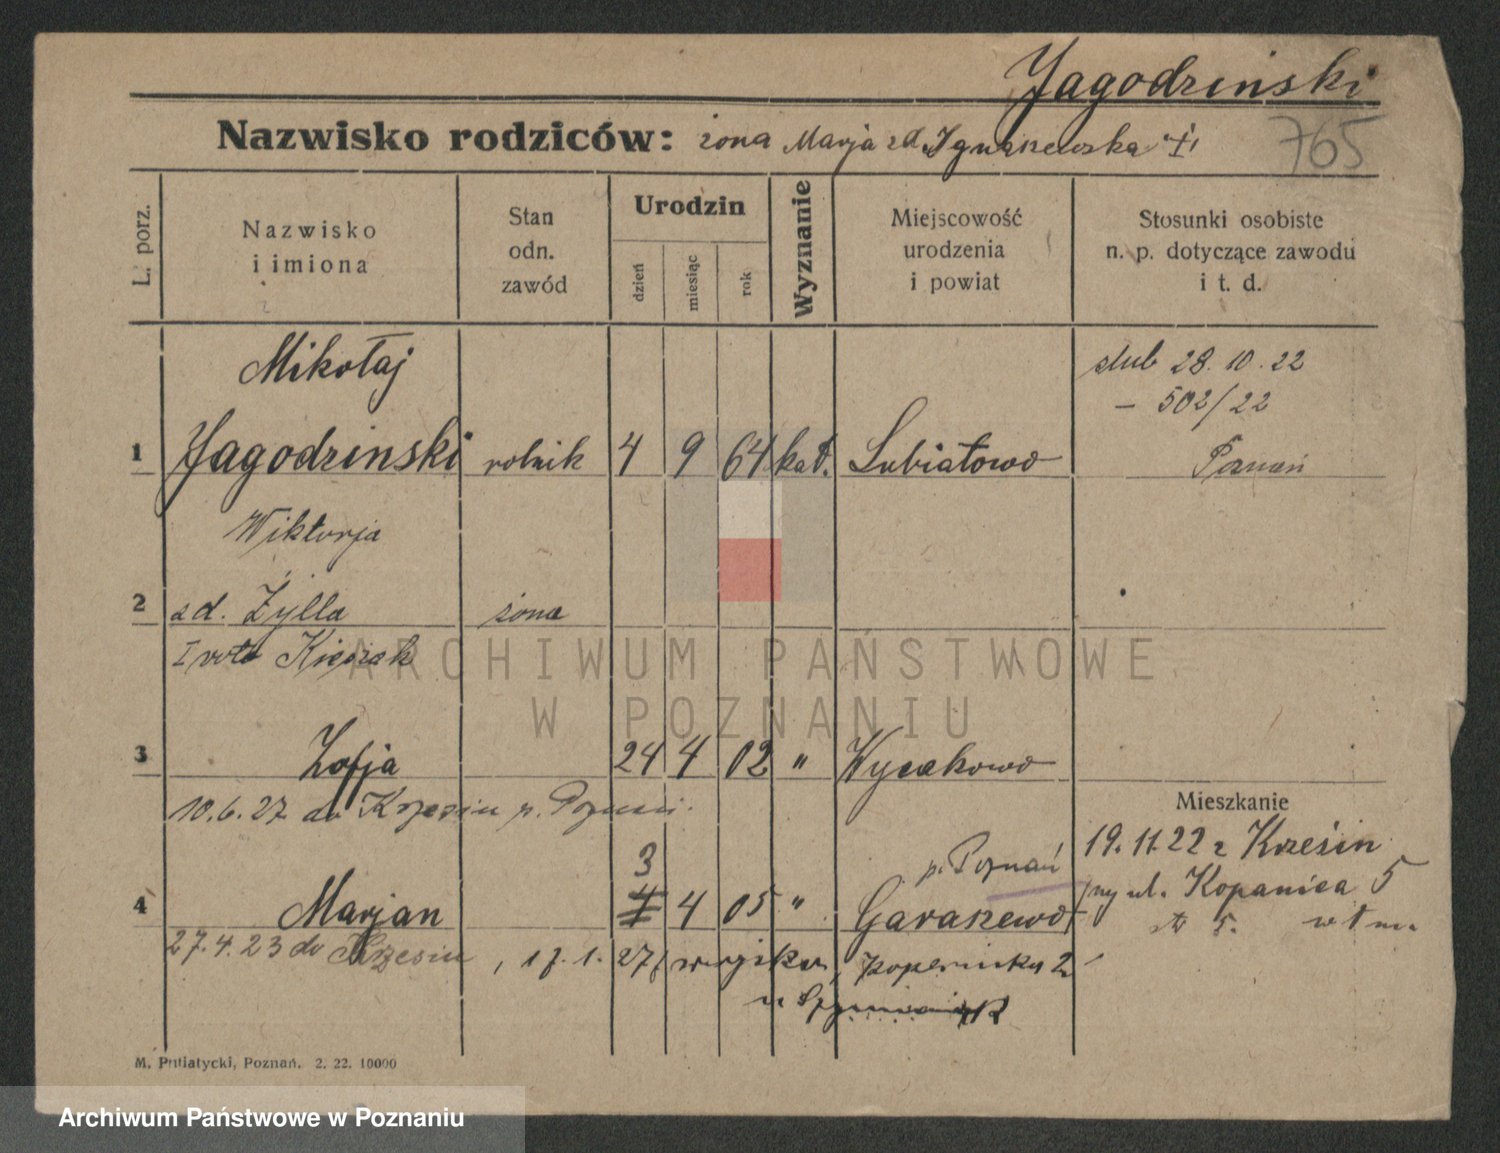 Jagodzinski
Nazwisko rodziców: żona Marja zd. Ignaszewska
765
L. porz.
Nazwisko
i imiona
Stan
odn.
zawód
Urodzin
dzień
miesiąc
rok
Wyznanie
Miejscowość
urodzenia
i powiat
Stosunki osobiste
n. p. dotyczące zawodu
i t. d.
Mikołaj
ślub 28. 10. 22
– 502/22
1 Jagodzinski rolnik 4 9 64 kat. Lubiatowo Poznań
Wiktorja
2 zd. Żylla żona
I voto Kiejzak
3 Zofja 24 4 02 " Wycakowo
10.6.27 do Krzesin p. Poznań.
Mieszkanie
19. 11. 22 z Krzesin
3
p. Poznań
ul. Kopanica 5
4 Marjan 4 05 " Garaszewo
5.
27.4.23 do Krzesin, 17.1.27 z wojska,
M. Putiatycki, Poznań. 2. 22. 10000
ARCHIWUM PAŃSTWOWE
W POZNANIU
Archiwum Państwowe w Poznaniu